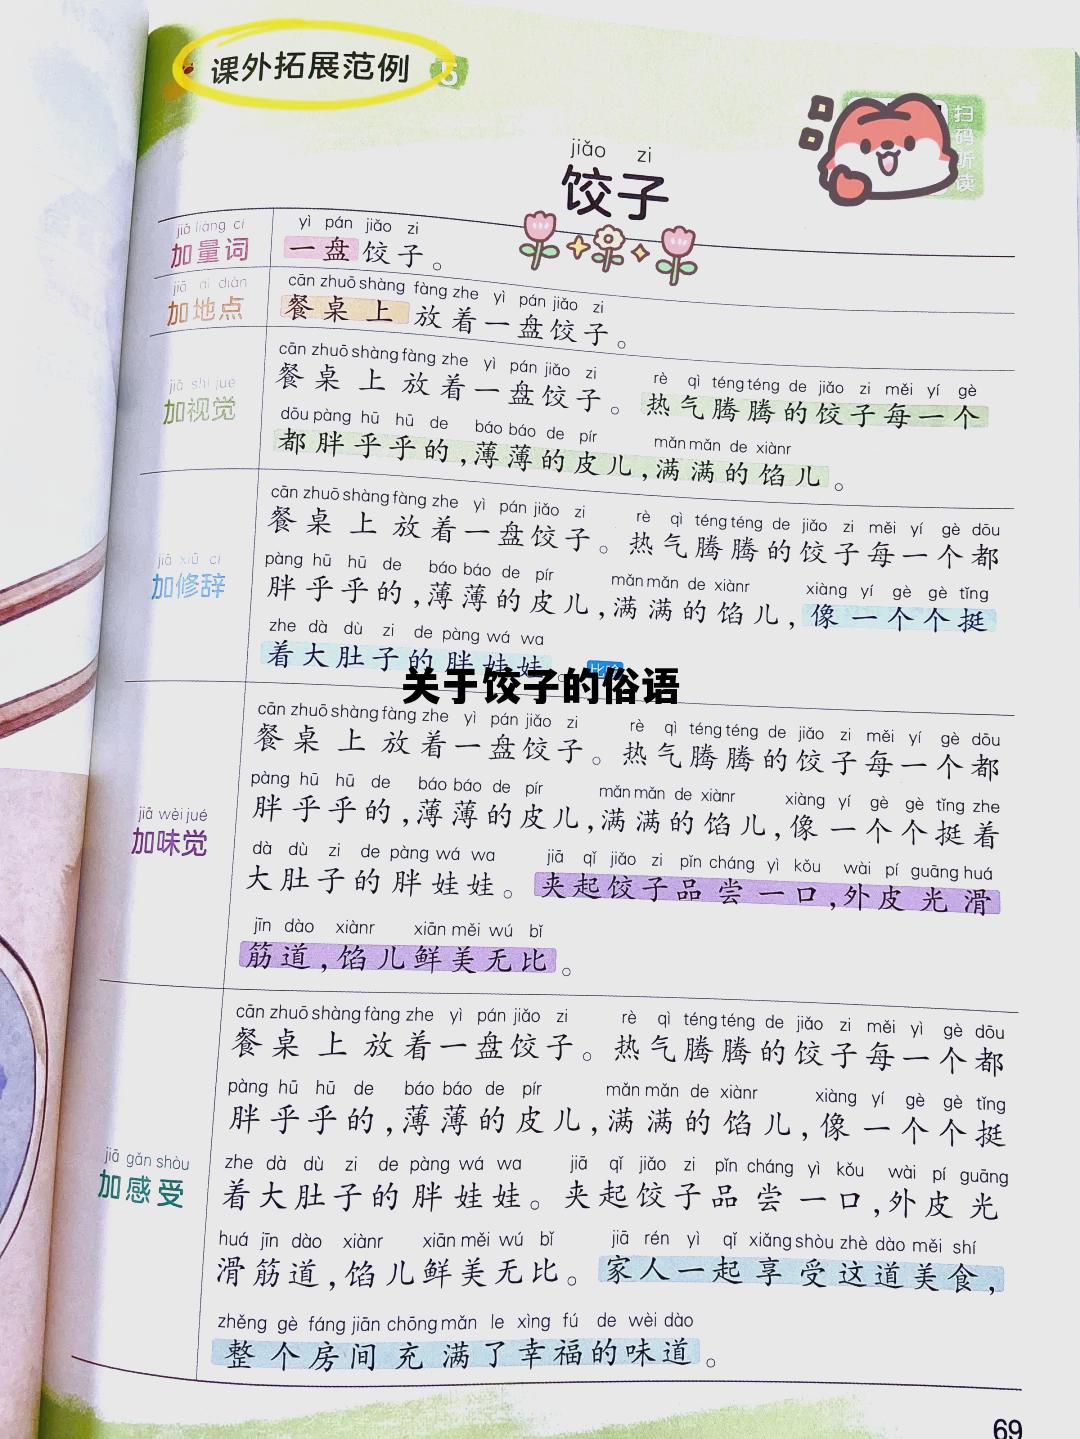 课外拓展范例 5
扫码听读
jiǎo zi
饺子
jiā liàng cí
加量词
yì pán jiǎo zi
一盘饺子。
jiā dì diǎn
加地点
cān zhuō shàng fàng zhe yì pán jiǎo zi
餐桌上放着一盘饺子。
jiā shì jué
加视觉
cān zhuō shàng fàng zhe yì pán jiǎo zi rè qì téng téng de jiǎo zi měi yí gè
餐桌上放着一盘饺子。热气腾腾的饺子每一个
dōu pàng hū hū de báo báo de pír mǎn mǎn de xiànr
都胖乎乎的,薄薄的皮儿,满满的馅儿。
jiā xiū cí
加修辞
cān zhuō shàng fàng zhe yì pán jiǎo zi rè qì téng téng de jiǎo zi měi yí gè dōu
餐桌上放着一盘饺子。热气腾腾的饺子每一个都
pàng hū hū de báo báo de pír mǎn mǎn de xiànr xiàng yí gè gè tǐng
胖乎乎的,薄薄的皮儿,满满的馅儿,像一个个挺
zhe dà dù zi de pàng wá wa
着大肚子的胖娃娃。
关于饺子的俗语
jiā wèi jué
加味觉
cān zhuō shàng fàng zhe yì pán jiǎo zi rè qì téng téng de jiǎo zi měi yí gè dōu
餐桌上放着一盘饺子。热气腾腾的饺子每一个都
pàng hū hū de báo báo de pír mǎn mǎn de xiànr xiàng yí gè gè tǐng zhe
胖乎乎的,薄薄的皮儿,满满的馅儿,像一个个挺着
dà dù zi de pàng wá wa jiā qǐ jiǎo zi pǐn cháng yì kǒu wài pí guāng huá
大肚子的胖娃娃。夹起饺子品尝一口,外皮光滑
jīn dào xiànr xiān měi wú bǐ
筋道,馅儿鲜美无比。
jiā gǎn shòu
加感受
cān zhuō shàng fàng zhe yì pán jiǎo zi rè qì téng téng de jiǎo zi měi yì gè dōu
餐桌上放着一盘饺子。热气腾腾的饺子每一个都
pàng hū hū de báo báo de pír mǎn mǎn de xiànr xiàng yí gè gè tǐng
胖乎乎的,薄薄的皮儿,满满的馅儿,像一个个挺
zhe dà dù zi de pàng wá wa jiā qǐ jiǎo zi pǐn cháng yì kǒu wài pí guāng
着大肚子的胖娃娃。夹起饺子品尝一口,外皮光
huá jīn dào xiànr xiān měi wú bǐ jiā rén yì qǐ xiǎng shòu zhè dào měi shí
滑筋道,馅儿鲜美无比。家人一起享受这道美食,
zhěng gè fáng jiān chōng mǎn le xìng fú de wèi dào
整个房间充满了幸福的味道。
69